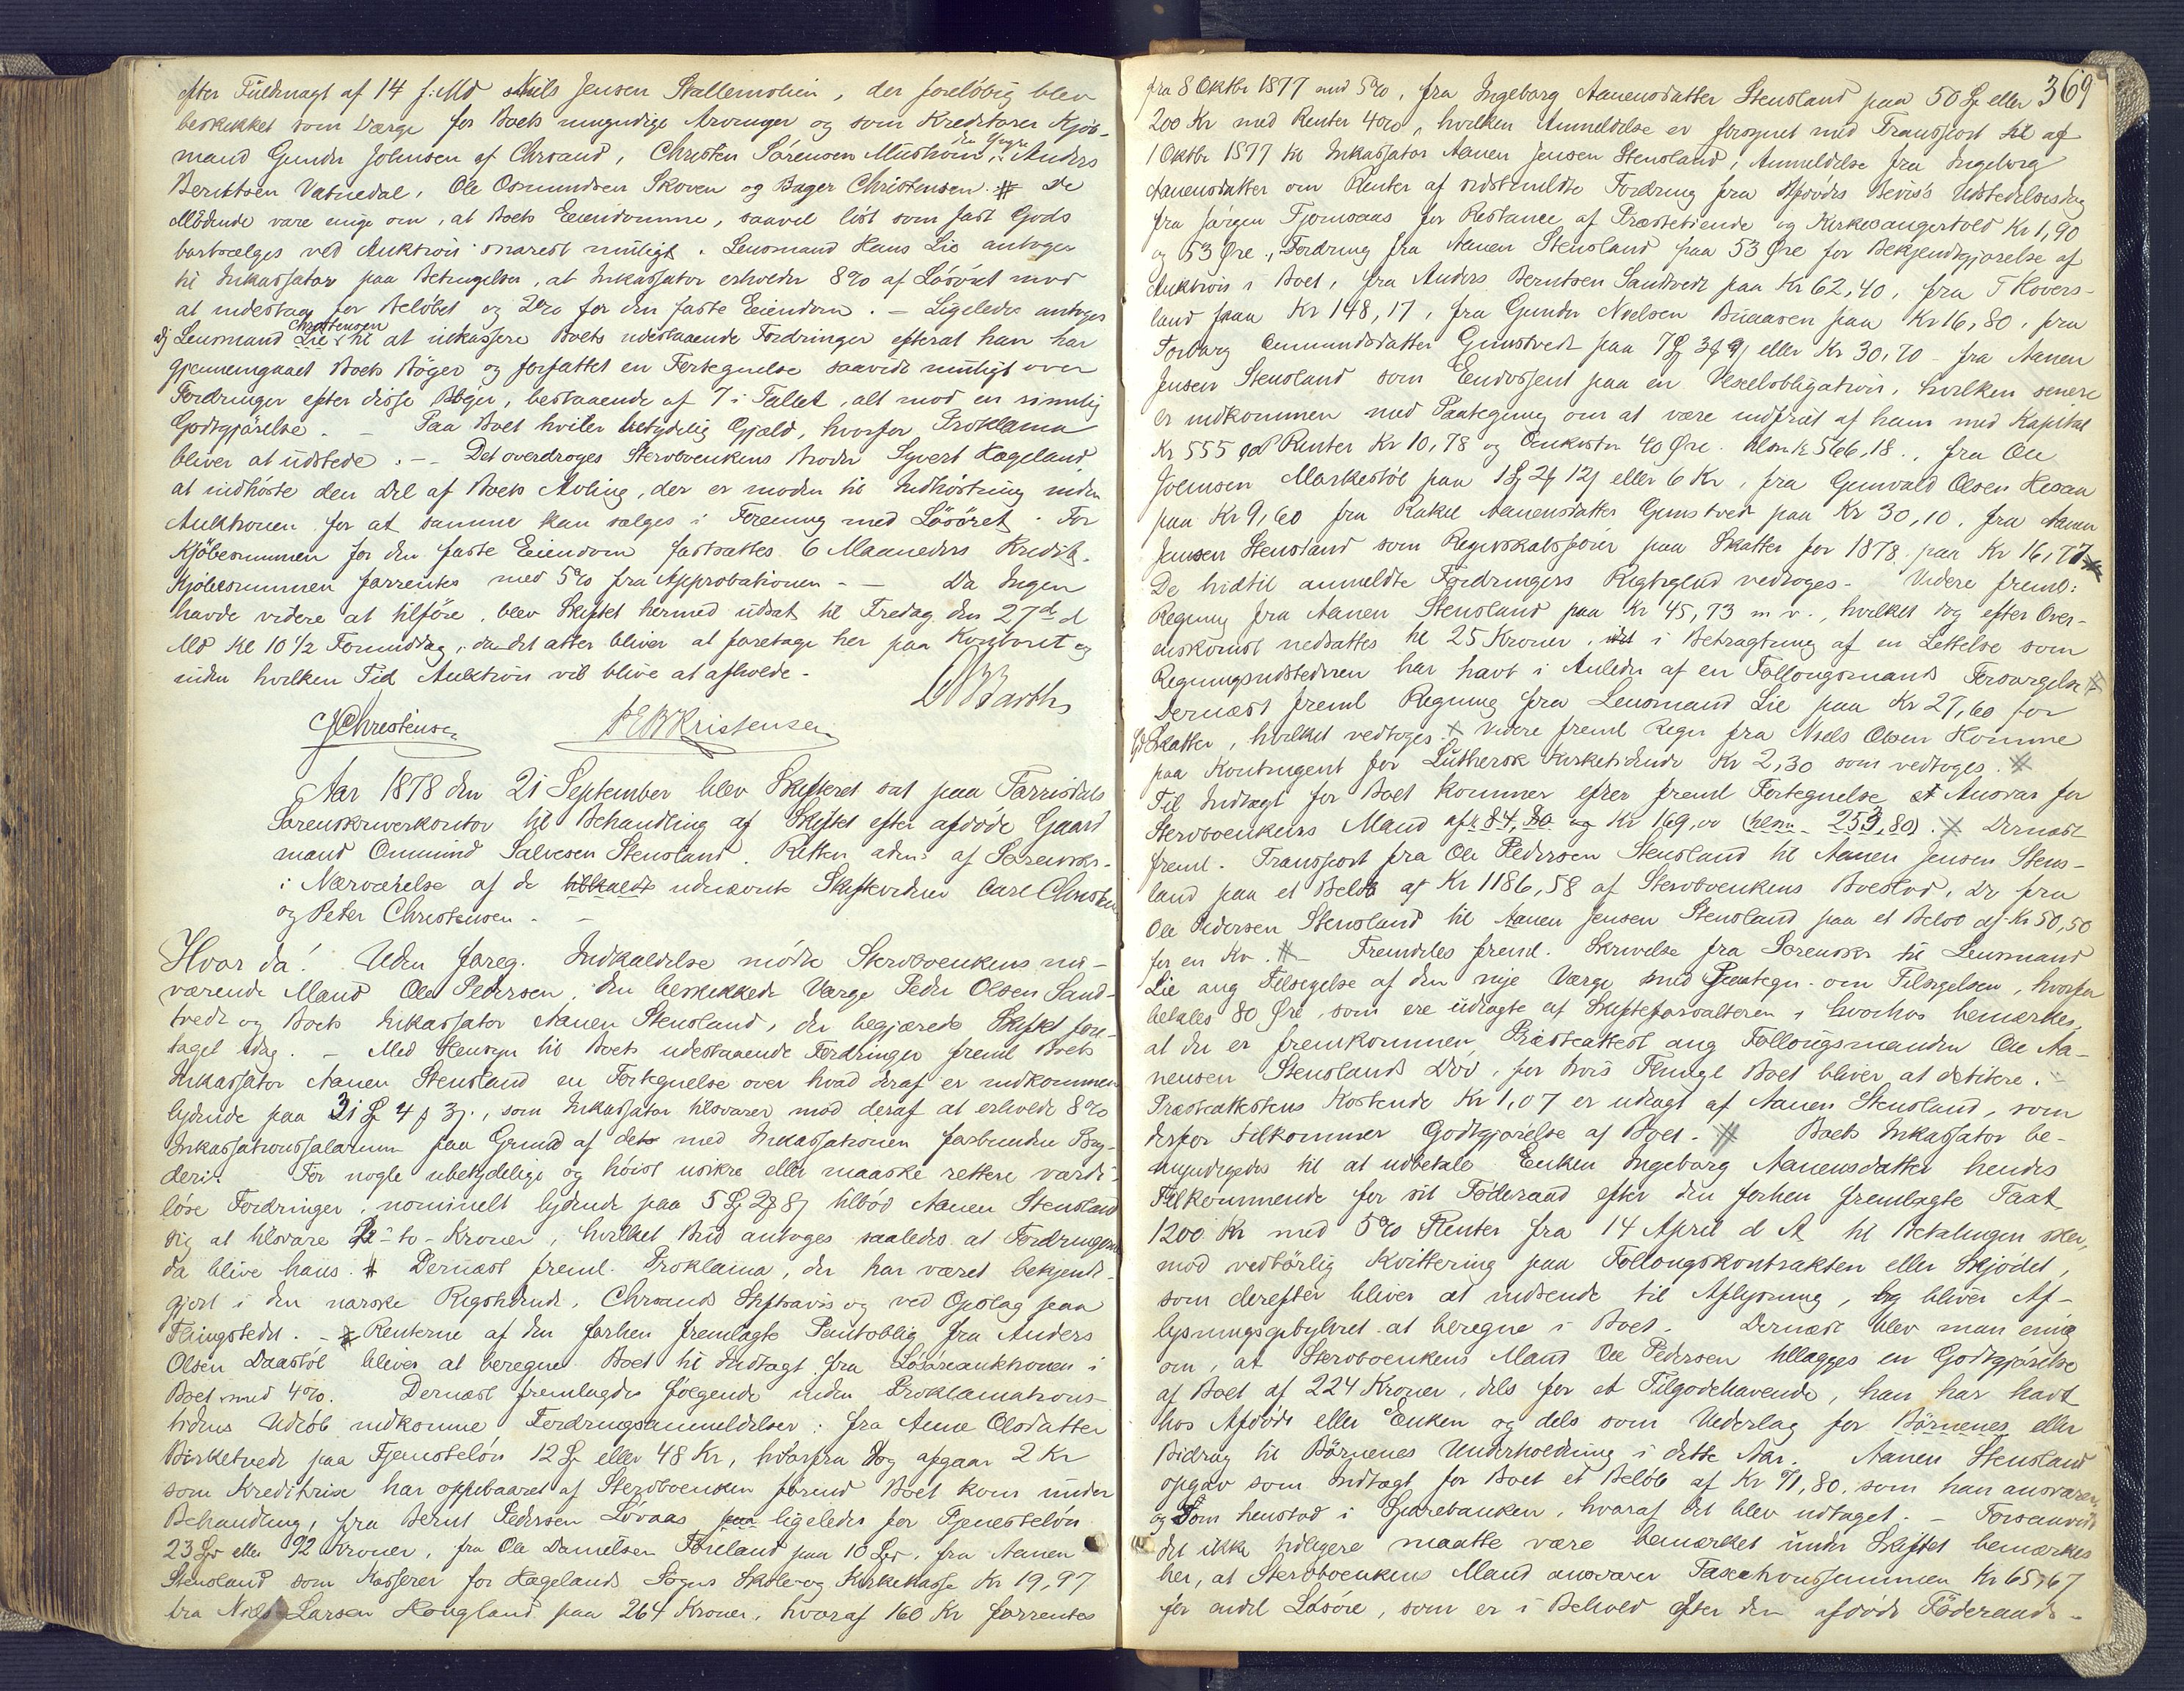 efter Fuldmagt af 14 f: Md Niels Jensen Stallemolien, der foreløbig blev
beskikket som Værge for Boets umyndige Arvinger og som Kreditorer Kjøb-
mand Gunder Johnsen af Chrsand, Christen Sørensen Mushom, Anders
Berntsen Vatnedal, Ole Osmundsen Skoven og Bager Christensen. # De
Mødende vare enige om, at Boets Eiendomme, saavel löst som fast Gods
bortsælges ved Auktion snarest muligt. Lensmand Hans Lie antoges
til Inkassator paa Betingelse, at Inkassator erholder 8% af Løsöret mod
at indestaa for Beløbet og 2% for den faste Eiendom. - Ligeledes antoges
Lensmand Lie Christensen til at inkassere Boets udestaaende Fordringer efterat han har
gjennemgaaet Boets Bøger og forfattet en Fortegnelse saavidt muligt over
Fordringer efter disse Bøger, bestaaende af 7 i Tallet, alt mod en rimelig
Godtgjørelse. - Paa Boet hviler betydelig Gjæld, hvorfor Proklama
bliver at udstede. - Det overdroges Stervboenkens Broder Syvert Hageland
at indhøste den Del af Boets Avling, der er moden til Indhøstning inden
Auktionen for at samme kan sælges i Forening med Løsöret. For
Kjöbesummen for den faste Eiendom fastsattes 6 Maaneders Kredit.
Kjöbesummen forrentes med 5% fra Approbationen - Da Ingen
havde videre at tilföre, blev Skiftet hermed udsat til Fredag den 27de d
Md Kl 10 1/2 Formiddag, da det atter bliver at foretage her paa Kontoret og
inden hvilken Tid Auktion vil blive at afholde.
Barth
C Christensen P E B Kristensen
Aar 1878 den 21 September blev Skifteret sat paa Torrisdals
Sorenskriverkontor til Behandling af Skiftet efter afdöde Gaard
mand Ommund Salvesen Stensland. Retten adm: af Sorenskr.
i Nærværelse af de tilkaldte udnævnte Skiftevidner Carl Christensen
og Peter Christensen. -
Hvor da! Uden foreg. Indkaldelse mödte Stervboenkens nu-
værende Mand Ole Pedersen, den beskikkede Værge Peder Olsen Sand-
tvedt og Boets Inkassator Aanen Stensland, der begjærede Skiftet fore-
taget idag. - Med Hensyn til Boets udestaaende Fordringer freml Boets
Inkassator Aanen Stensland en Fortegnelse over hvad deraf er indkommen
lydende paa 31 Sp 4 # 3 s., som Inkassator tilsvarer mod deraf at erholde 8%
Inkassationssalarium paa Grund af det med Inkassationen forbundne Bry-
deri. For nogle ubetydelige og höist usikre eller maaske rettere værdi-
løse Fordringer, nominelt lydende paa 5 Sp 2 # 8 s tilbød Aanen Stensland
sig at tilsvare 2 - to - Kroner, hvilket Bud antoges saaledes at Fordringerne
da blive hans. # Dernæst freml. Proklama, der har været bekjendt-
gjort i den norske Rigstidende, Chrsands Stiftsavis og ved Opslag paa
Thingstedet. - # Renterne af den forhen fremlagte Pantoblig fra Anders
Olsen Daastøl bliver at beregne Boet til Indtægt fra Løsøreauktionen i
Boet med 4%. Dernæst fremlagdes følgende inden Proklamations-
tidens Udløb indkomne Fordringsanmeldelser: fra Anne Olsdatter
Birketvedt paa Tjenesteløn 12 Sp eller 48 Kr, hvorfra dog afgaar 2 Kr
som Kreditrise har oppebaaret af Stervboenken førend Boet kom under
Behandling, fra Bernt Pedersen Lövaas paa ligeledes for Tjenesteløn
23 Sp eller 92 Kroner, fra Ole Danielsen Föreland paa 10 Spd, fra Aanen
Stensland som Kasserer for Hægelands Sogns Skole- og Kirkekasse Kr 19,97
fra Niels Larsen Hougland paa 264 Kroner, hvoraf 160 Kr forrentes
369
fra 8 Oktbr 1877 med 5%, fra Ingeborg Aanensdatter Stensland paa 50 Sp eller
200 Kr med Renter 4%, hvilken Anmeldelse er forsynet med Transport til af
1 Oktbr 1877 til Inkassator Aanen Jensen Stensland, Anmeldelse fra Ingeborg
Aanensdatter om Renter af sidstmeldte Fordring fra Afdødes Bevis's Udstedelsesdag
fra Jørgen Tjomsaas for Restance af Præstetiende og Kirkesangertold Kr 1,90
og 53 Øre, Fordring fra Aanen Stensland paa 53 Øre for Bekjendtgjørelse af
Auktion i Boet, fra Anders Berntsen Sandvedt paa Kr 62,40, fra T Hovers-
land paa Kr 148,17, fra Gunder Nielsen Buaasen paa Kr 16,80, fra
Torborg Ommundsdatter Gunstvedt paa 7 Sp 3 # 9 s eller Kr 30,70 - fra Aanen
Jensen Stensland som Endossent paa en Vexelobligation, hvilken senere
er indkommen med Paategning om at være indfriet af ham med Kapital
Kr 555 og Renter Kr 10,78 og Omkostn 40 Øre tilsm Kr 566,18., fra Ole
Johnsen Markestöl paa 1 Sp 2 # 12 s eller 6 Kr, fra Gunvald Olsen Hesaa
paa Kr 9,60 fra Rakel Aanensdatter Gunstvedt paa Kr 30,10, fra Aanen
Jensen Stensland som Regnskabsfører paa Skatter for 1878 paa Kr 16,77 #
De hidtil anmeldte Fordringers Rigtighed vedtoges - Videre freml:
Regning fra Aanen Stensland paa Kr 45,73 m v., hvilket dog efter Over-
enskomst nedsattes til 25 Kroner, i Betragtning af en Lettelse som
Regningsudstederen har havt i Anledn af en Follougsmands Forsørgelse #
Dernæst freml Regning fra Lensmand Lie paa Kr 27,60 for
Skatter, hvilket vedtoges # Videre freml Regn fra Niels Olsen Homme
paa Kontingent for Luthersk Kirketidende Kr 2,30 som vedtoges. #
Til Indtægt for Boet kommer efter freml Fortegnelse et Ansvar for
Stervboenkens Mand af 84,80 og Kr 169,00 (tilsm. 253,80). # Dernæst
freml. Transport fra Ole Pedersen Stensland til Aanen Jensen Stens-
land paa et Beløb af Kr 1186,58 af Stervboenkens Boeslod, Do fra
Ole Pedersen Stensland til Aanen Jensen Stensland paa et Beløb af Kr 50,50
for en Ko. # - Fremdeles freml. Skrivelse fra Sorenskr til Lensmand
Lie ang Tilsigelse af den nye Værge med Paategn. om Tilsigelsen, hvorfor
betales 80 Øre, som ere udlagte af Skifteforvalteren, hvorhos bemærkes,
at der er fremkommen Præsteattest ang Follougsmanden Ole Aa-
nensen Stenslands Död, for hvis Thingl Boet bliver at debitere. -
Præsteattestens Kostende Kr 1,07 er udlagt af Aanen Stensland, som
derfor tilkommer Godtgjørelse af Boet. # Boets Inkassator be-
myndigedes til at udbetale Enken Ingeborg Aanensdatter hendes
Tilkommende for sit Föderaad efter den forhen fremlagte Taxt
1200 Kr med 5% Renter fra 14 April d A til Betalingen sker,
mod vedbörlig Kvittering paa Follougskontrakten eller Skjödet,
som derefter bliver at indsende til Aflysning, og bliver Af-
lysningsgebyhret at beregne i Boet. Dernæst blev man enig
om, at Stervboenkens Mand Ole Pedersen tillægges en Godtgjørelse
af Boet af 224 Kroner, dels for et Tilgodehavende, han har havt
hos Afdøde eller Enken og dels som Vederlag for Börnenes eller
Bidrag til Börnenes Underholdning i dette Aar. Aanen Stensland
opgav som Indtægt for Boet et Beløb af Kr 71,80, som han ansvarer
og som henstod i Sparebanken, hvoraf det blev udtaget. - Forsaavidt
det ikke tidligere maatte være bemærket under Skiftet bemærkes
her, at Stervboenkens Mand ansvarer Taxationssummen Kr 65,67
for endel Løsöre, som er i Behold efter den afdøde Föderaads-